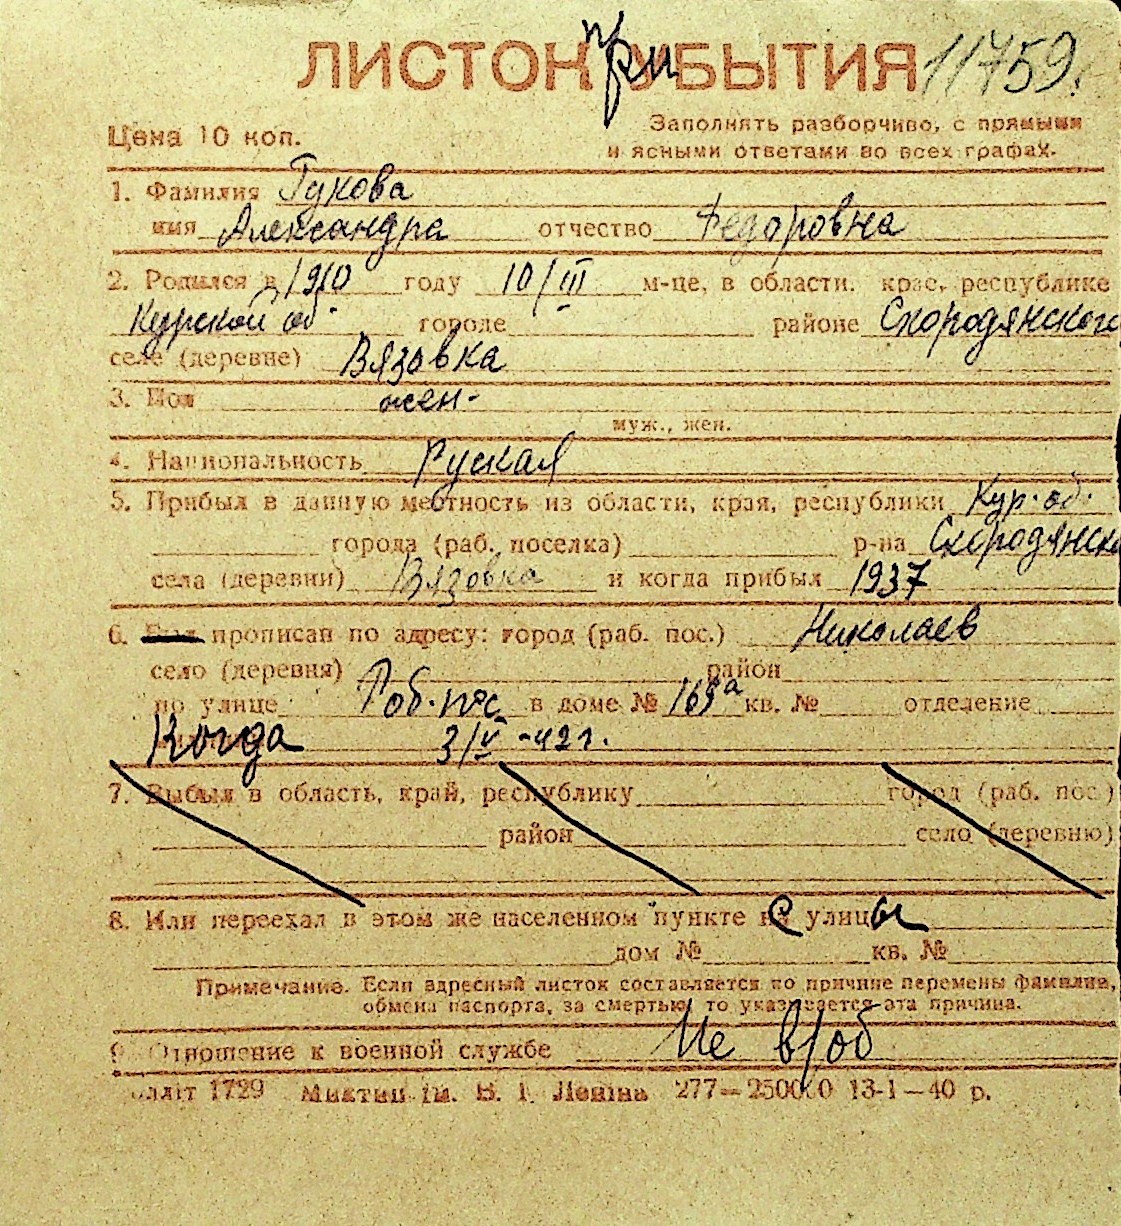 ЛИСТОК при УБЫТИЯ 11759.
Цена 10 коп.
Заполнять разборчиво, с прямыми
и ясными ответами во всех графах.
1. Фамилия Гукова
имя Александра отчество Федоровна
2. Родился в 1910 году 10/III м-це, в области, крае, республике
Курской об. городе районе Скородянского
селе (деревне) Вязовка
3. Пол жен-
муж., жен.
4. Национальность Руская
5. Прибыл в данную местность из области, края, республики Кур. об.
города (раб. поселка) р-на Скородянск
села (деревни) Вязовка и когда прибыл 1937
6. прописан по адресу: город (раб. пос.) Николаев
село (деревня) район
по улице Роб. пос в доме № 169а кв. № отделение
Когда 3/V-42г.
7. Выбыл в область, край, республику город (раб. пос.)
район село (деревню)
8. Или переехал в этом же населенном пункте с улицы
дом № кв. №
Примечание. Если адресный листок составляется по причине перемены фамилии,
обмена паспорта, за смертью, то указывается эта причина.
9. Отношение к военной службе Не в/об
1729 Ми ім. В. І. Леніна 277—250000 13-1—40 р.